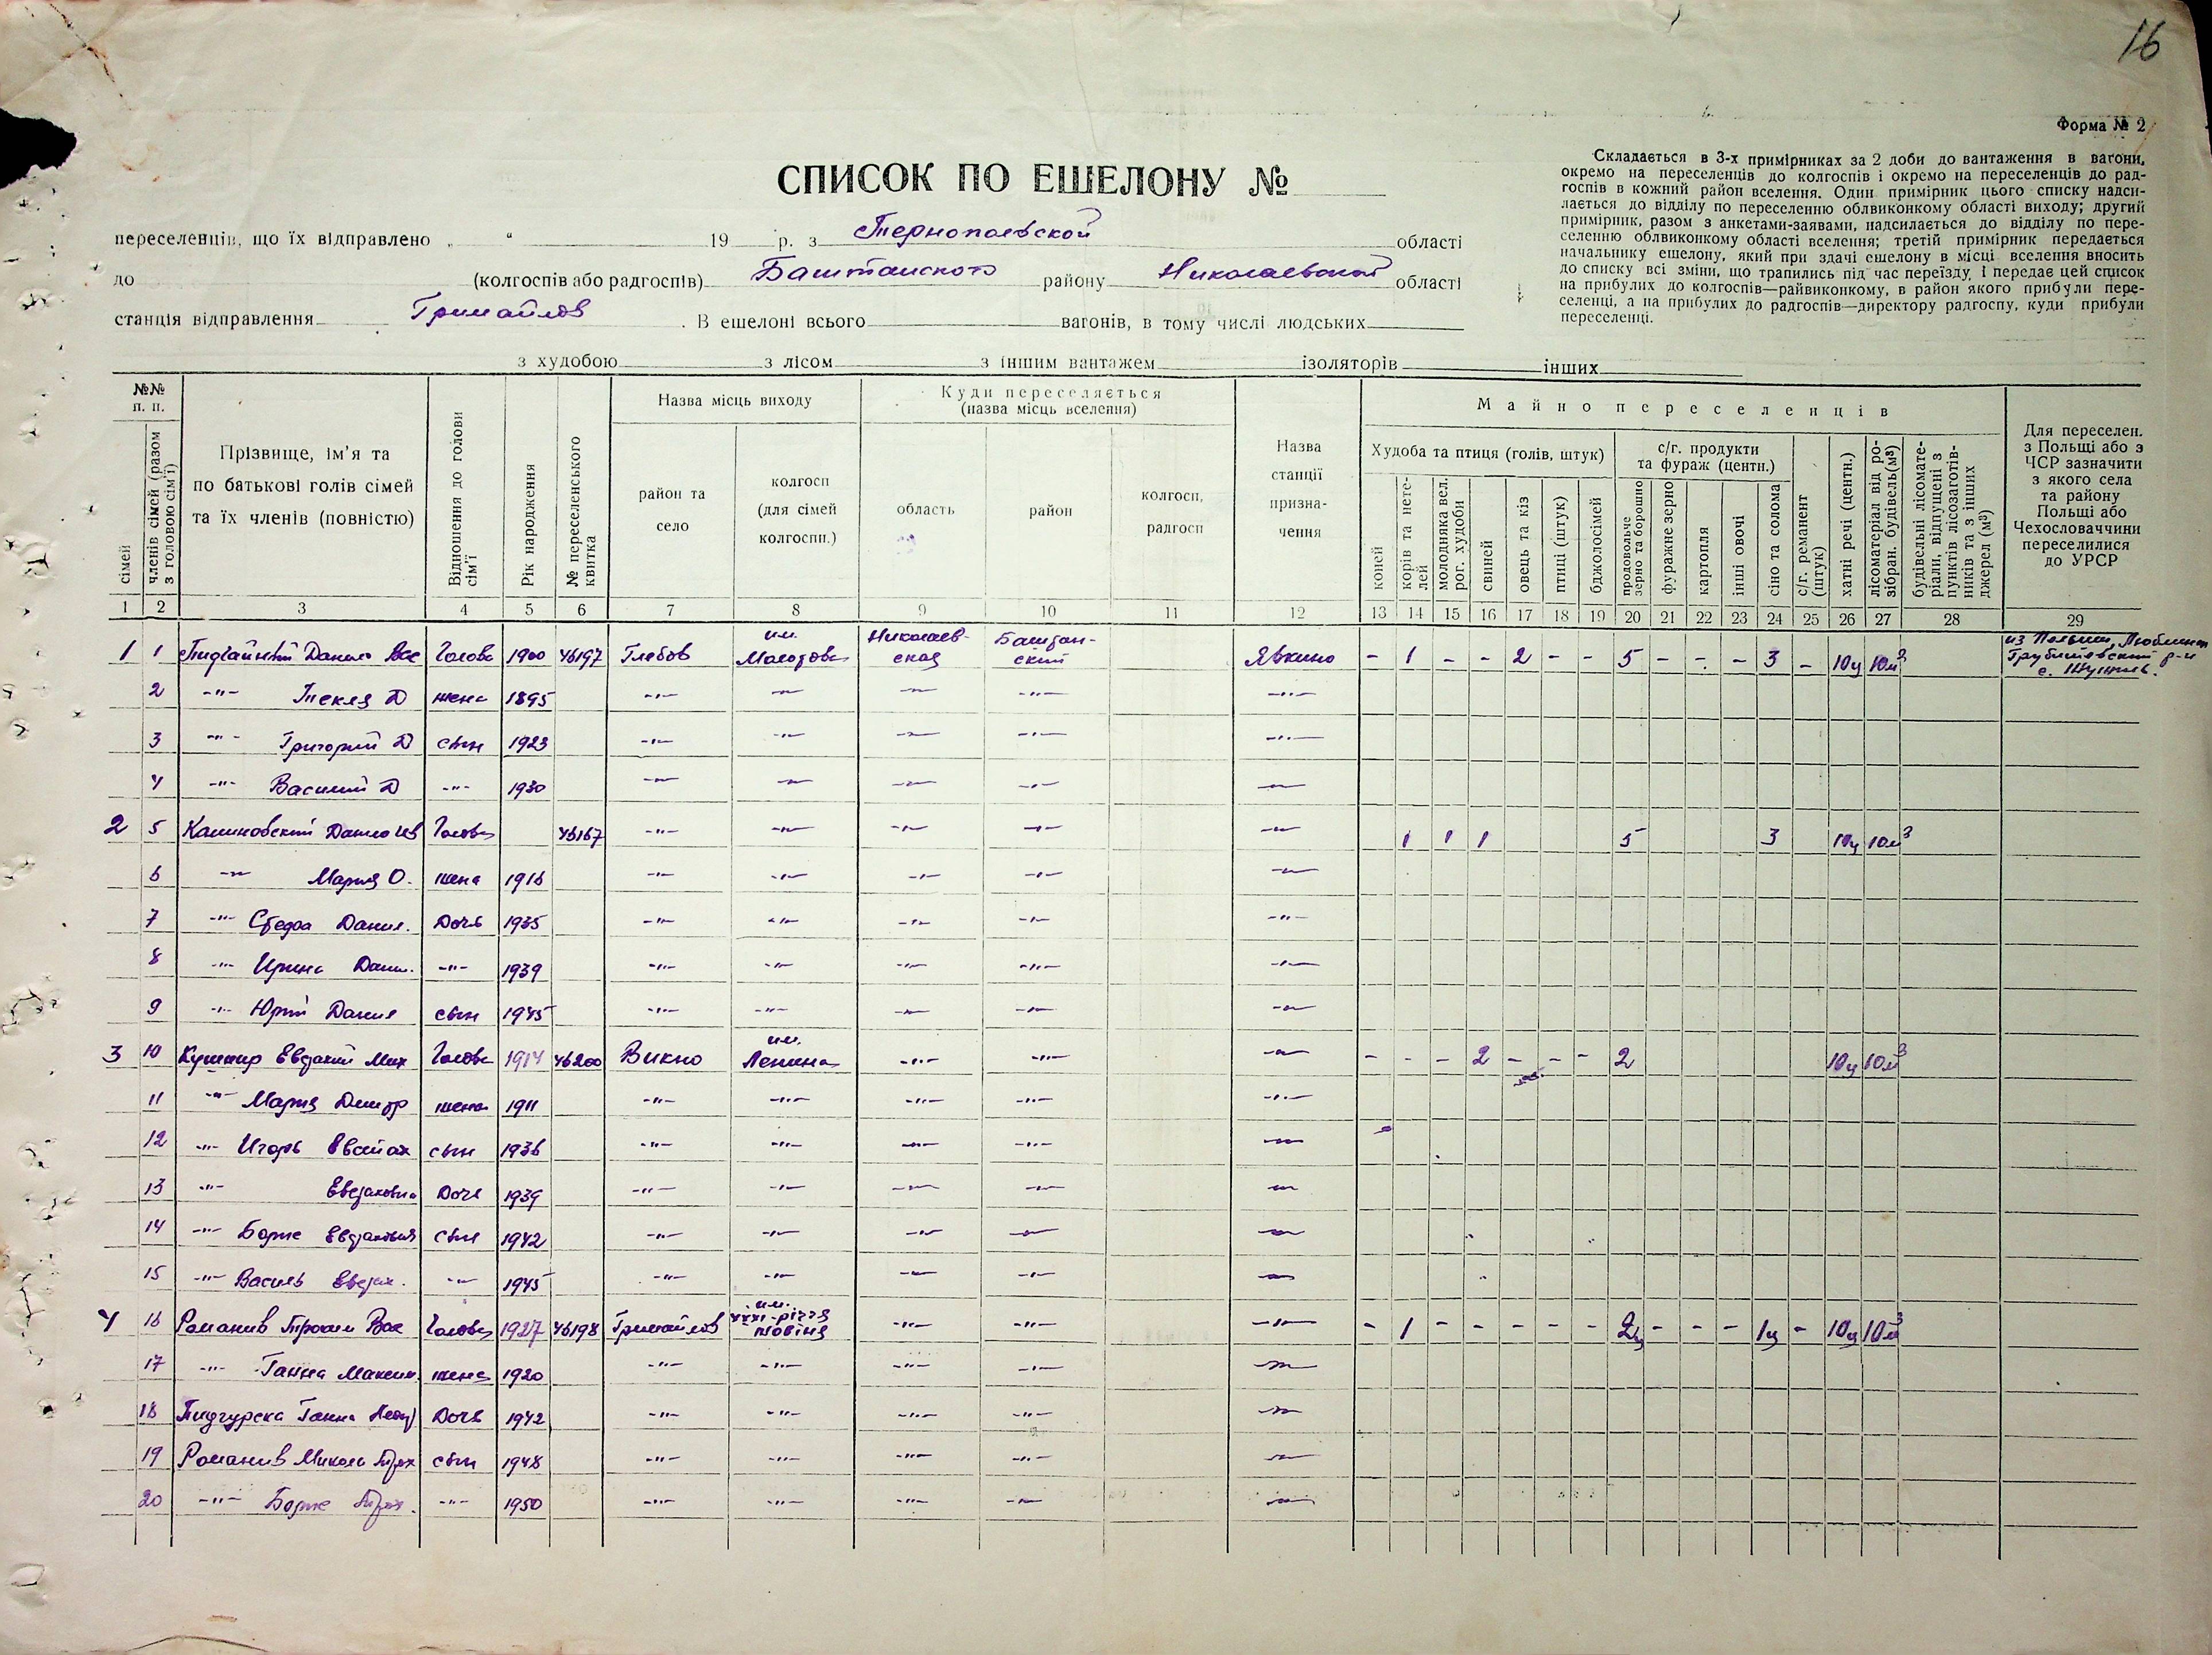 16
Форма № 2
СПИСОК ПО ЕШЕЛОНУ №
Складається в 3-х примірниках за 2 доби до вантаження в вагони,
окремо на переселенців до колгоспів і окремо на переселенців до рад-
госпів в кожний район вселення. Один примірник цього списку надси-
лається до відділу по переселенню облвиконкому області виходу; другий
примірник, разом з анкетами-заявами, надсилається до відділу по пере-
селенню облвиконкому області вселення; третій примірник передається
начальнику ешелону, який при здачі ешелону в місці вселення вносить
до списку всі зміни, що трапились під час переїзду, і передає цей список
на прибулих до колгоспів—райвиконкому, в район якого прибули пере-
селенці, а на прибулих до радгоспів—директору радгоспу, куди прибули
переселенці.
переселенців, що їх відправлено „ “ 19 р. з Тернопольской області
до (колгоспів або радгоспів) Баштанского району Николаевской області
станція відправлення Гримайлов . В ешелоні всього вагонів, в тому числі людських
з худобою з лісом з іншим вантажем ізоляторів інших
№№ п. п.
сімей
членів сімей (разом з головою сім'ї)
Прізвище, ім'я та
по батькові голів сімей
та їх членів (повністю)
Відношення до голови сім'ї
Рік народження
№ переселенського квитка
Назва місць виходу
район та
село
колгосп
(для сімей
колгоспн.)
Куди переселяється
(назва місць вселення)
область
район
колгосп,
радгосп
Назва
станції
призна-
чення
Майно переселенців
Худоба та птиця (голів, штук)
коней
корів та нете-
лей
молодняка вел.
рог. худоби
свиней
овець та кіз
птиці (штук)
бджолосімей
с/г. продукти
та фураж (центн.)
продовольче
зерно та борошно
фуражне зерно
картопля
інші овочі
сіно та солома
с/г. реманент
(штук)
хатні речі (центн.)
лісоматеріал від ро-
зібран. будівель(м³)
будівельні лісомате-
ріали, відпущені з
пунктів лісозаготів-
ників та з інших
джерел (м³)
Для переселен.
з Польщі або з
ЧСР зазначити
з якого села
та району
Польщі або
Чехословаччини
переселилися
до УРСР
1 2 3 4 5 6 7 8 9 10 11 12 13 14 15 16 17 18 19 20 21 22 23 24 25 26 27 28 29
1 1 Данило Вас Голова 1900 46197 Глебов им. Молотова Николаев-ская Баштан-ский Явкино - 1 - - 2 - - 5 - - - 3 - 10ц 10м³ из Польши,
2 -"- Текля Д жена 1895 -"- -"- -"- -"- -"-
3 -"- Григорий Д сын 1923 -"- -"- -"- -"- -"-
4 -"- Василий Д -"- 1930 -"- -"- -"- -"- -"-
2 5 Калиновский Данило Голова 46167 -"- -"- -"- -"- -"- 1 1 1 5 3 10ц 10м³
6 -"- Мария О. жена 1916 -"- -"- -"- -"- -"-
7 -"- Данил. Дочь 1935 -"- -"- -"- -"- -"-
8 -"- Ирина Данил. -"- 1939 -"- -"- -"- -"- -"-
9 -"- Юрий Данил сын 1945 -"- -"- -"- -"- -"-
3 10 Кушнир Мих Голова 1914 46200 Викно им. Ленина -"- -"- -"- - - - 2 - - - 2 10ц 10м³
11 -"- Мария Дмитр жена 1911 -"- -"- -"- -"- -"-
12 -"- Игорь сын 1936 -"- -"- -"- -"- -"-
13 -"- Дочь 1939 -"- -"- -"- -"- -"-
14 -"- Борис сын 1942 -"- -"- -"- -"- -"-
15 -"- Василь -"- 1945 -"- -"- -"- -"- -"-
4 16 Романив Вас Голова 1927 46198 Гримайлов им. -"- -"- -"- - 1 - - - - - 2ц - - - 1ц - 10ц 10м³
17 -"- Ганна Максим. жена 1920 -"- -"- -"- -"- -"-
18 Пидгурска Ганна Дочь 1942 -"- -"- -"- -"- -"-
19 Романив Микола Трох сын 1948 -"- -"- -"- -"- -"-
20 -"- Борис Трох. -"- 1950 -"- -"- -"- -"- -"-